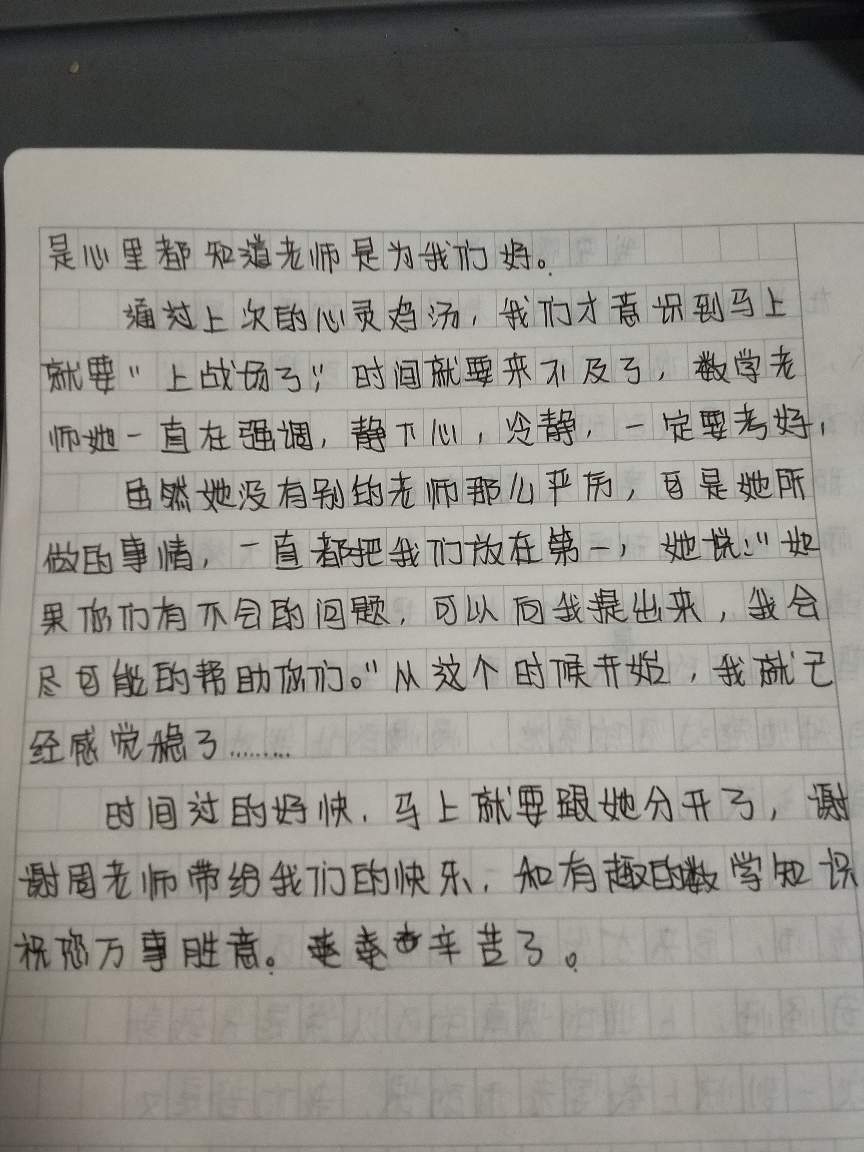 是心里都知道老师是为我们好。
通过上次的心灵鸡汤，我们才意识到马上
就要"上战场了"，时间就要来不及了，数学老
师她一直在强调，静下心，冷静，一定要考好，
虽然她没有别的老师那么严厉，可是她所
做的事情，一直都把我们放在第一，她说："如
果你们有不会的问题，可以向我提出来，我会
尽可能的帮助你们。"从这个时候开始，我就已
经感觉稳了………
时间过的好快，马上就要跟她分开了，谢
谢周老师带给我们的快乐，和有趣的数学知识
祝您万事胜意。辛苦了。